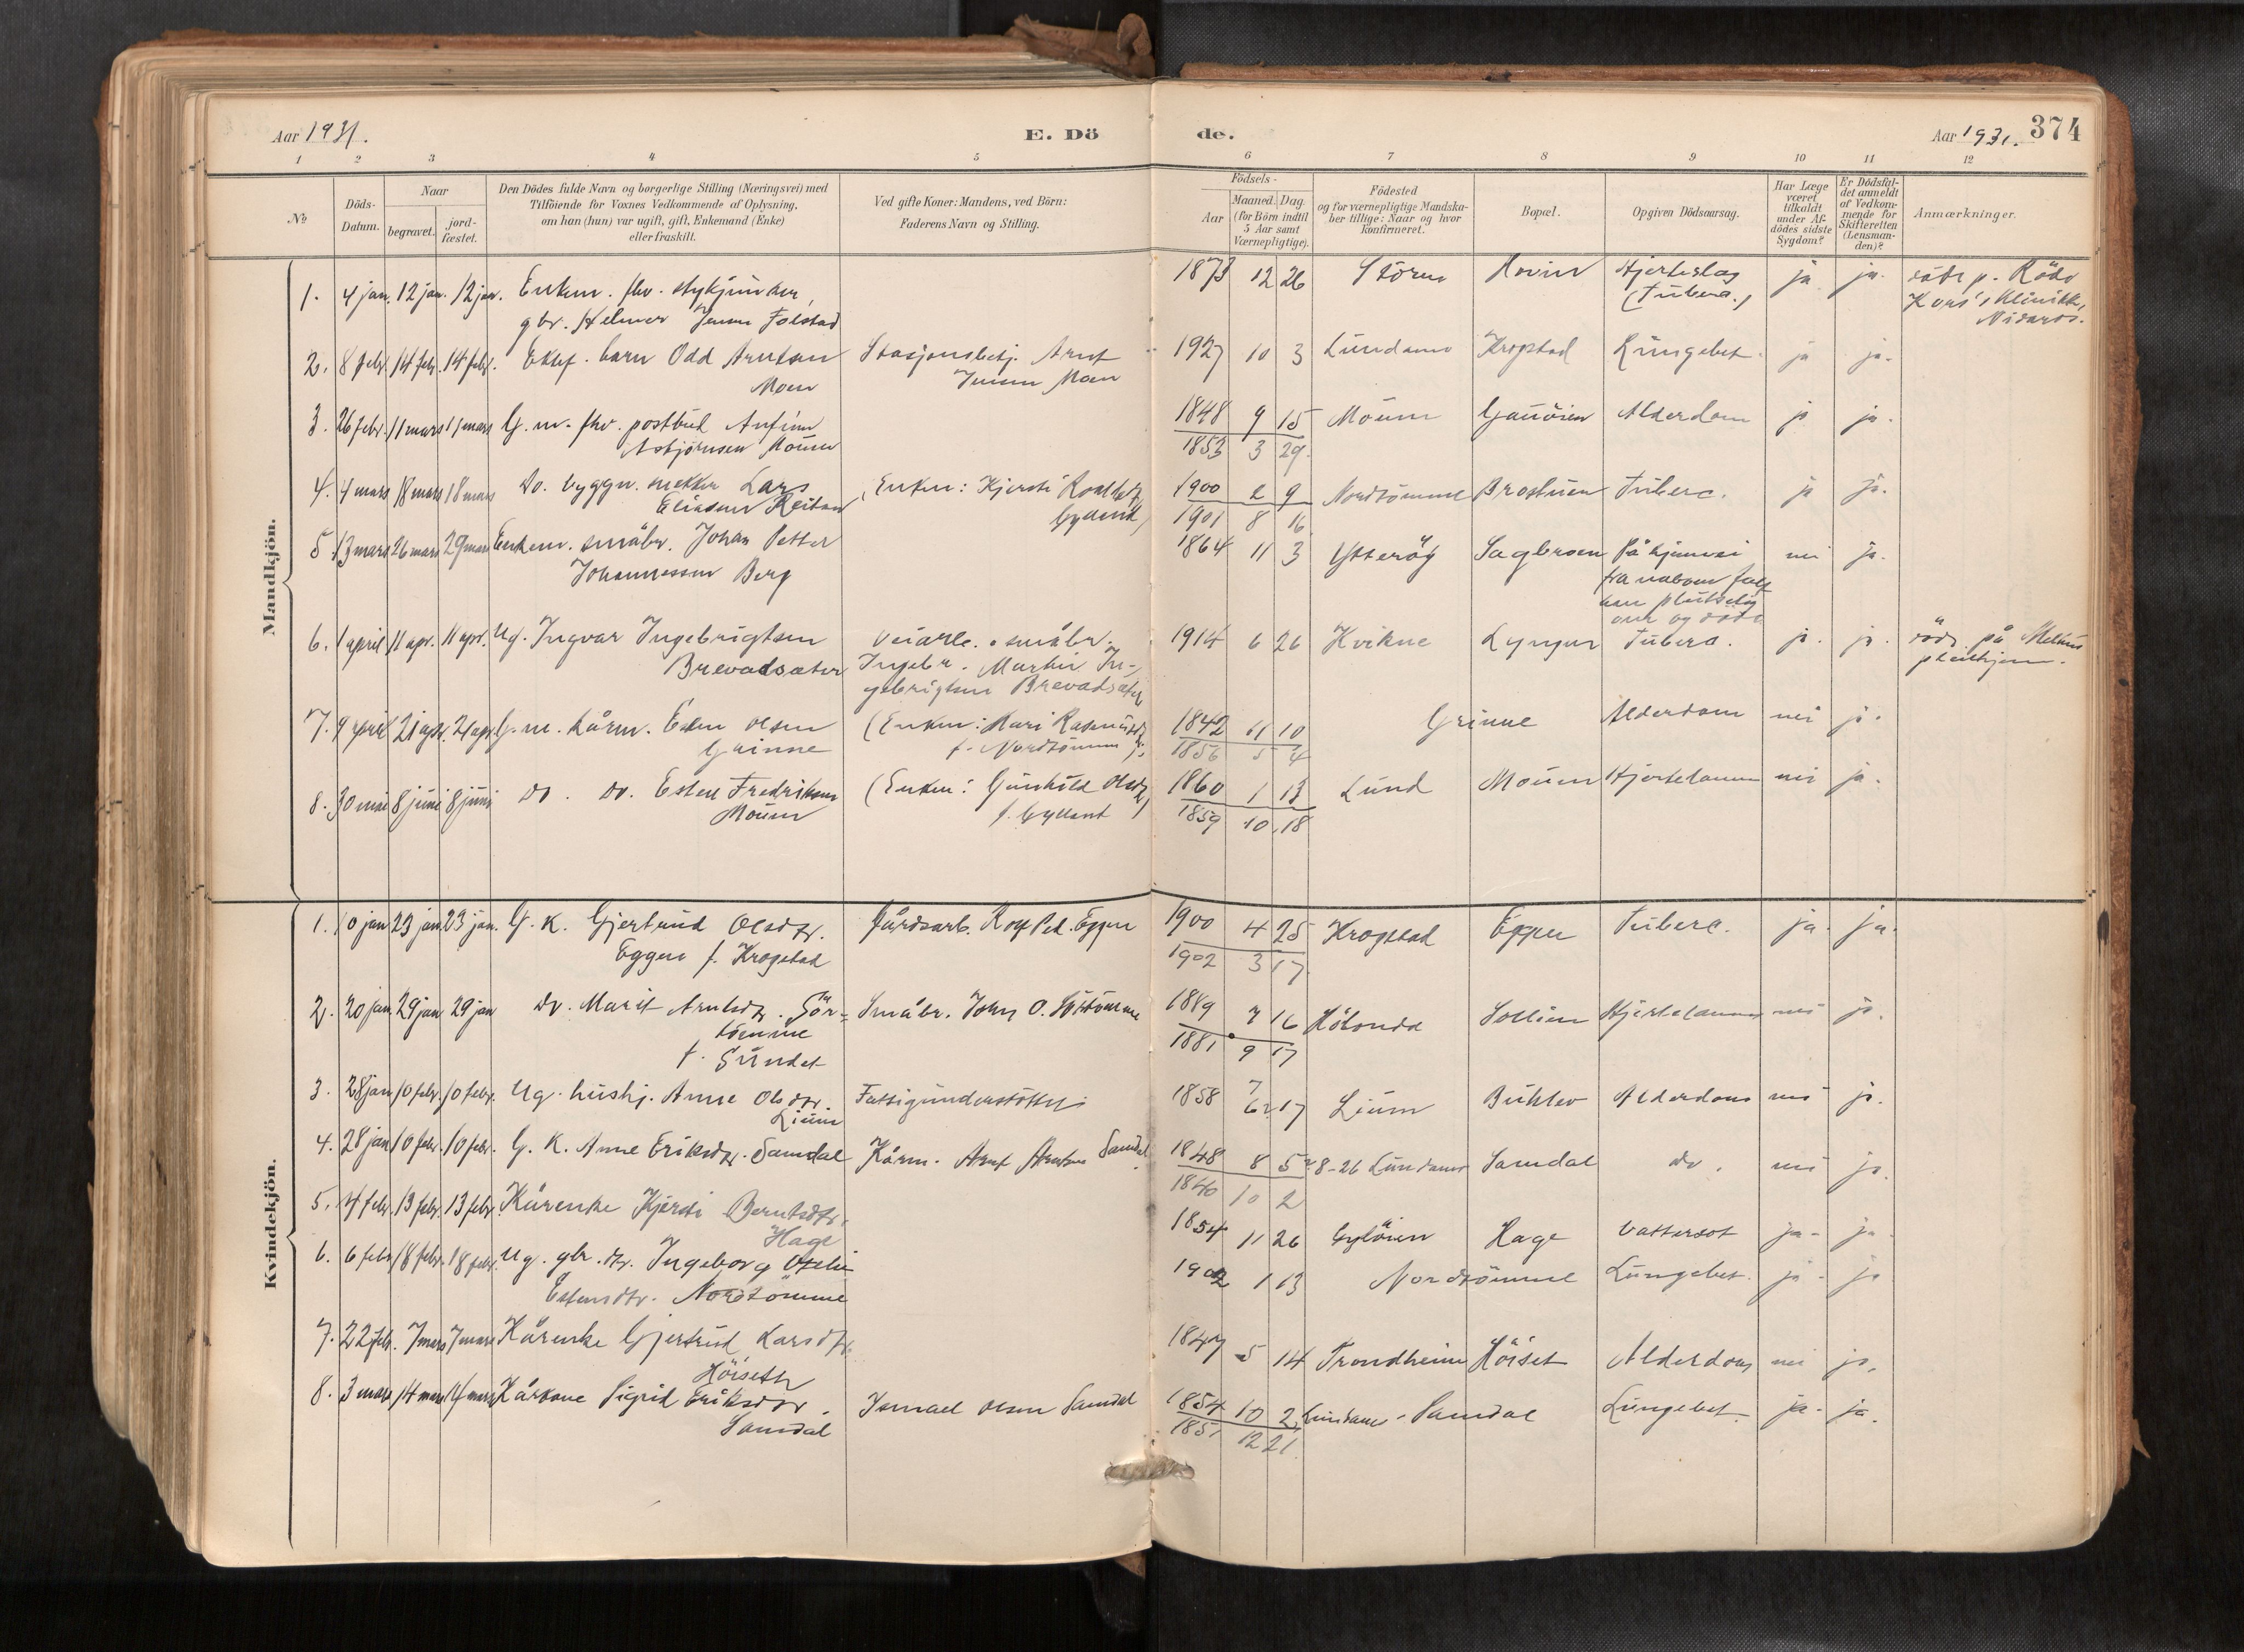 Aar 1931.
E. Dö
de.
Aar 1931.
374
1 2 3 4 5 6 7 8 9 10 11 12
No
Döds-
Datum.
Naar
begravet.
jord-
fæstet.
Den Dödes fulde Navn og borgerlige Stilling (Næringsvei) med
Tilföiende for Voxnes Vedkommende af Oplysning,
om han (hun) var ugift, gift, Enkemand (Enke)
eller fraskilt.
Ved gifte Koner: Mandens, ved Börn:
Faderens Navn og Stilling.
Födsels-
Aar
Maaned. Dag
(for Börn indtil
5 Aar samt
Værnepligtige).
Födested
og for værnepligtige Mandska-
ber tillige: Naar og hvor
konfirmeret.
Bopæl.
Opgiven Dödsaarsag.
Har Læge
været
tilkaldt
under Af-
dödes sidste
Sygdom?
Er Dödsfal-
det anmeldt
af Vedkom-
mende for
Skifteretten
(Lensman-
den)?
Anmærkninger.
Mandkjön.
1. 4 jan. 12 jan. 12 jan. Enkem. fhv.
gbr. Helmer Jensen Folstad
1873 12 26 Stören Hovin Hjerteslag ja ja. döde p. Röde
(Tuberc.)
Kors' Klinikk,
Nidaros.
2. 8 febr. 14 febr. 14 febr. Ektef. barn Odd Arntsen Stasjonsbetj. Arnt
Moen Jensen Moen
1927 10 3 Lundamo Krogstad Lungebet. ja ja.
3. 26 febr. 11 mars 11 mars G. m. fhv. postbud Anfinn
Asbjörnsen Mouen
1848 9 15 Mouen Gauöien Alderdom ja ja.
1853 3 29.
4. 4 mars 18 mars 18 mars Do. byggn. snekker Lars (Enken: Kjersti
Eliasen Reitan Gylland)
1900 2 9 Nordtömme Brostuen Tuberc. ja ja.
1901 8 16
5. 13 mars 26 mars 29 mars Enkem. småbr. Johan Petter
Johannessen Berg
1864 11 3 Ytteröy Sagbroen På hjemvei nei ja.
fra naboen falt
han plutselig
om og döde
6. 1 april 11 apr. 11 apr. Ug. Ingvar Ingebrigtsen Veiarb. o. småbr.
Brevadsæter Ingebr. Martin In-
gebrigtsen Brevadsæter
1914 6 26 Kvikne Lyngen Tuberc. ja. ja. döde på Melhus
pleiehjem.
7. 9 april 21 apr. 21 apr. G. m. kårm. Esten Olsen (Enken: Mari Rasmusd.
Grinne f. Nordtömme).
1842 11 10 Grinne Alderdom nei ja.
1856 5 4
8. 30 mai 8 juni 8 juni do. do. Esten Fredriksen (Enken: Gunhild Olsd.
Mouen f. Gylland)
1860 1 13 Lund Mouen Hjertelamm. nei ja.
1859 10 18
Kvindekjön.
1. 10 jan 23 jan 23 jan. G. K. Gjertrud Olsdtr. Gårdsarb. Rolf Ped. Eggen
Eggen f. Krogstad
1900 4 25 Krogstad Eggen Tuberc. ja. ja.
1902 3 17
2. 20 jan. 29 jan 29 jan do. Marit Arntsdtr. Sör- Småbr. John O. Sörtömme
tömme
f. Sundet
1889 7 16 Hölonda Sollien Hjertelamm. nei ja.
1881 9 17
3. 28 jan 10 febr. 10 febr. Ug. hushj. Anne Olsdtr. Fattigunderstöttet
Lium
1858 7 6 17 Lium Buklev Alderdom nei ja.
4. 28 jan 10 febr. 10 febr. G. K. Anne Eriksdtr. Samdal Kårm. Arnt Arntsen Samdal
1848 8 5 8-26 Lundamo Samdal do. nei ja.
1840 10 2
5. 4 febr. 13 febr. 13 febr. Kårenke Kjersti Berntsdtr.
Hage
1854 11 26 Gylöien Hage Vattersot ja. ja
6. 6 febr. 18 febr. 18 febr. Ug. gbr. dtr. Ingeborg Otelie
Estensdtr. Nordtömme
1902 1 13 Nordtömme Lungebet. ja. ja
7. 22 febr. 7 mars 7 mars Kårenke Gjertrud Larsdtr.
Höiseth
1847 5 14 Trondheim Höiset Alderdom nei ja.
8. 3 mars 14 mars 14 mars Kårkone Sigrid Eriksdtr. Ismael Olsen Samdal
Samdal
1854 10 2 Lundamo Samdal Lungebet. ja. ja.
1851 12 21.